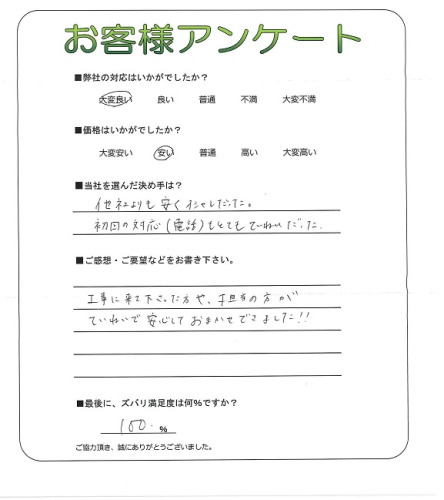 お客様アンケート
■弊社の対応はいかがでしたか？
大変良い 良い 普通 不満 大変不満
■価格はいかがでしたか？
大変安い 安い 普通 高い 大変高い
■当社を選んだ決め手は？
他社よりも安く
初回の対応(電話)もとてもていねいだった.
■ご感想・ご要望などをお書き下さい。
工事に来て下さった方や、担当の方が
ていねいで安心しておまかせできました!!
■最後に、ズバリ満足度は何%ですか？
100. %
ご協力頂き、誠にありがとうございました。